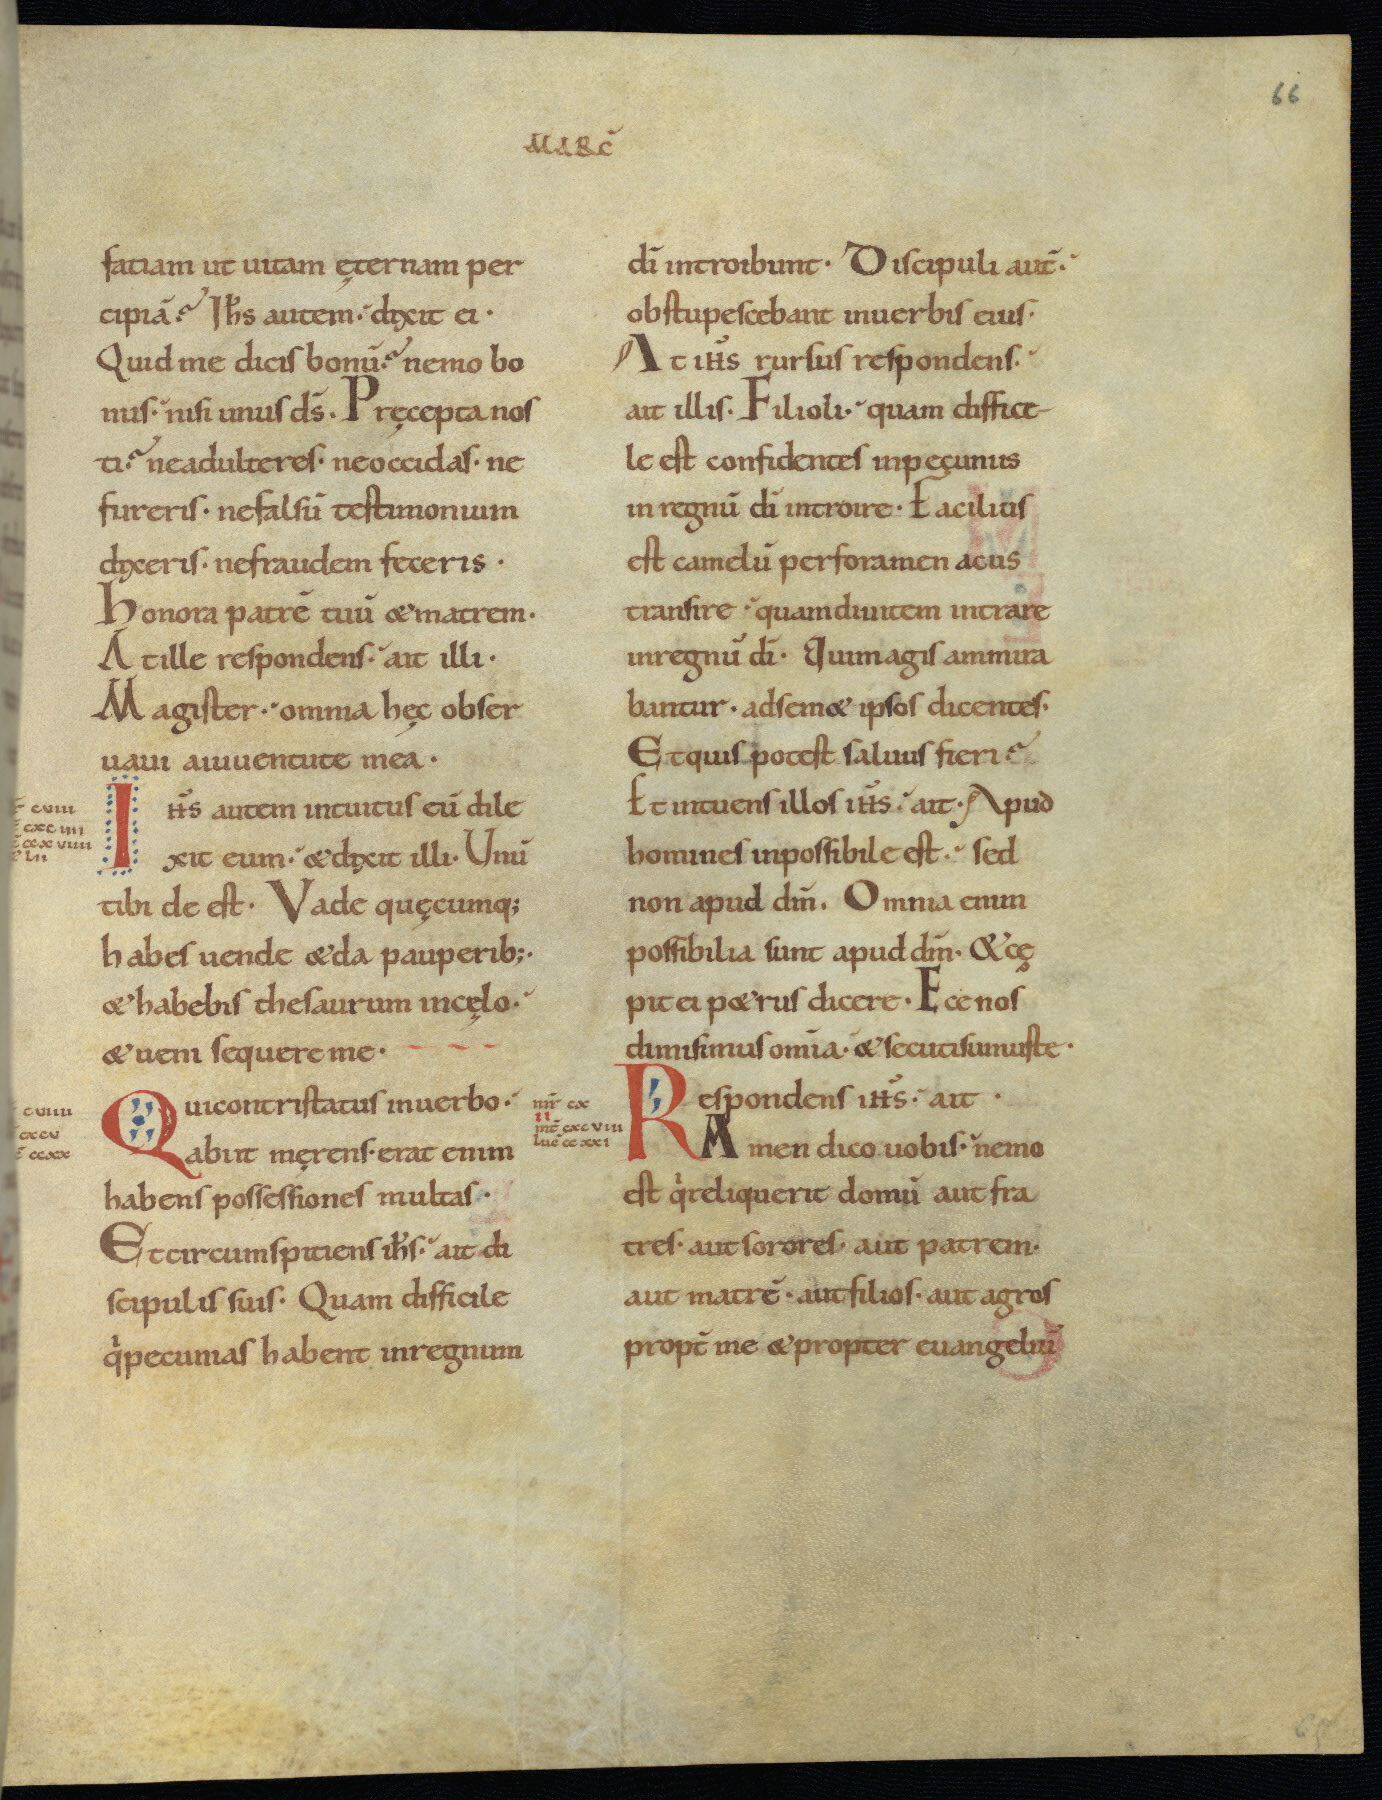 66
MARC̄
fatiam ut uitam ęternam per
cipiā? Ih̄s autem· dixit ei·
Quid me dicis bonū? nemo bo
nus· nisi unus ds̄. Pręcepta nos
ti? neadulteres· neoccidas· ne
fureris· nefalsū testimonium
dixeris· nefraudem feceris·
Honora patrē tuū & matrem·
At ille respondens· ait illi·
Magister· omnia hęc obser
uaui aiuuentute mea·
Ihs̄ autem intuitus eū dile
xit eum· & dixit illi· Unū
tibi de est· Vade quęcumq;
habes uende & da pauperib;·
& habebis thesaurum incęlo·
& ueni sequere me·
Qui contristatus inuerbo·
abiit męrens· erat enim
habens possessiones multas·
Et circumspitiens ih̄s· ait di
scipulis suis· Quam difficile
q̇ pecunias habent inregnum
cviiii
cxcv
ccxx
dī introibunt· Discipuli aut̄·
obstupescebant inuerbis eius·
At ihs̄ rursus respondens·
ait illis· Filioli· quam diffice
le est confidentes inpęcuniis
in regnū dī introire· Facilius
est camelū perforamen acus
transire· quamdiuitem intrare
inregnū dī· Qui magis ammira
bantur· adsem& ipsos dicentes·
Et quis potest saluus fieri?
Et intuens illos ihs̄· ait· Apud
homines inpossibile est· sed
non apud dm̄. Omnia enim
possibilia sunt apud dm̄· & cę
pit ei p&rus dicere· Ece nos
dimisimus om̄ia· & secuti sumus te·
Respondens ihs̄· ait·
Amen dico uobis· nemo
est q̇ reliquerit domū aut fra
tres· aut sorores· aut patrem·
aut matrē· aut filios· aut agros
propt̄ me & propter euangeliū
mr̄ cx
ii
mt̄ cxcviii
luc̄ ccxxi